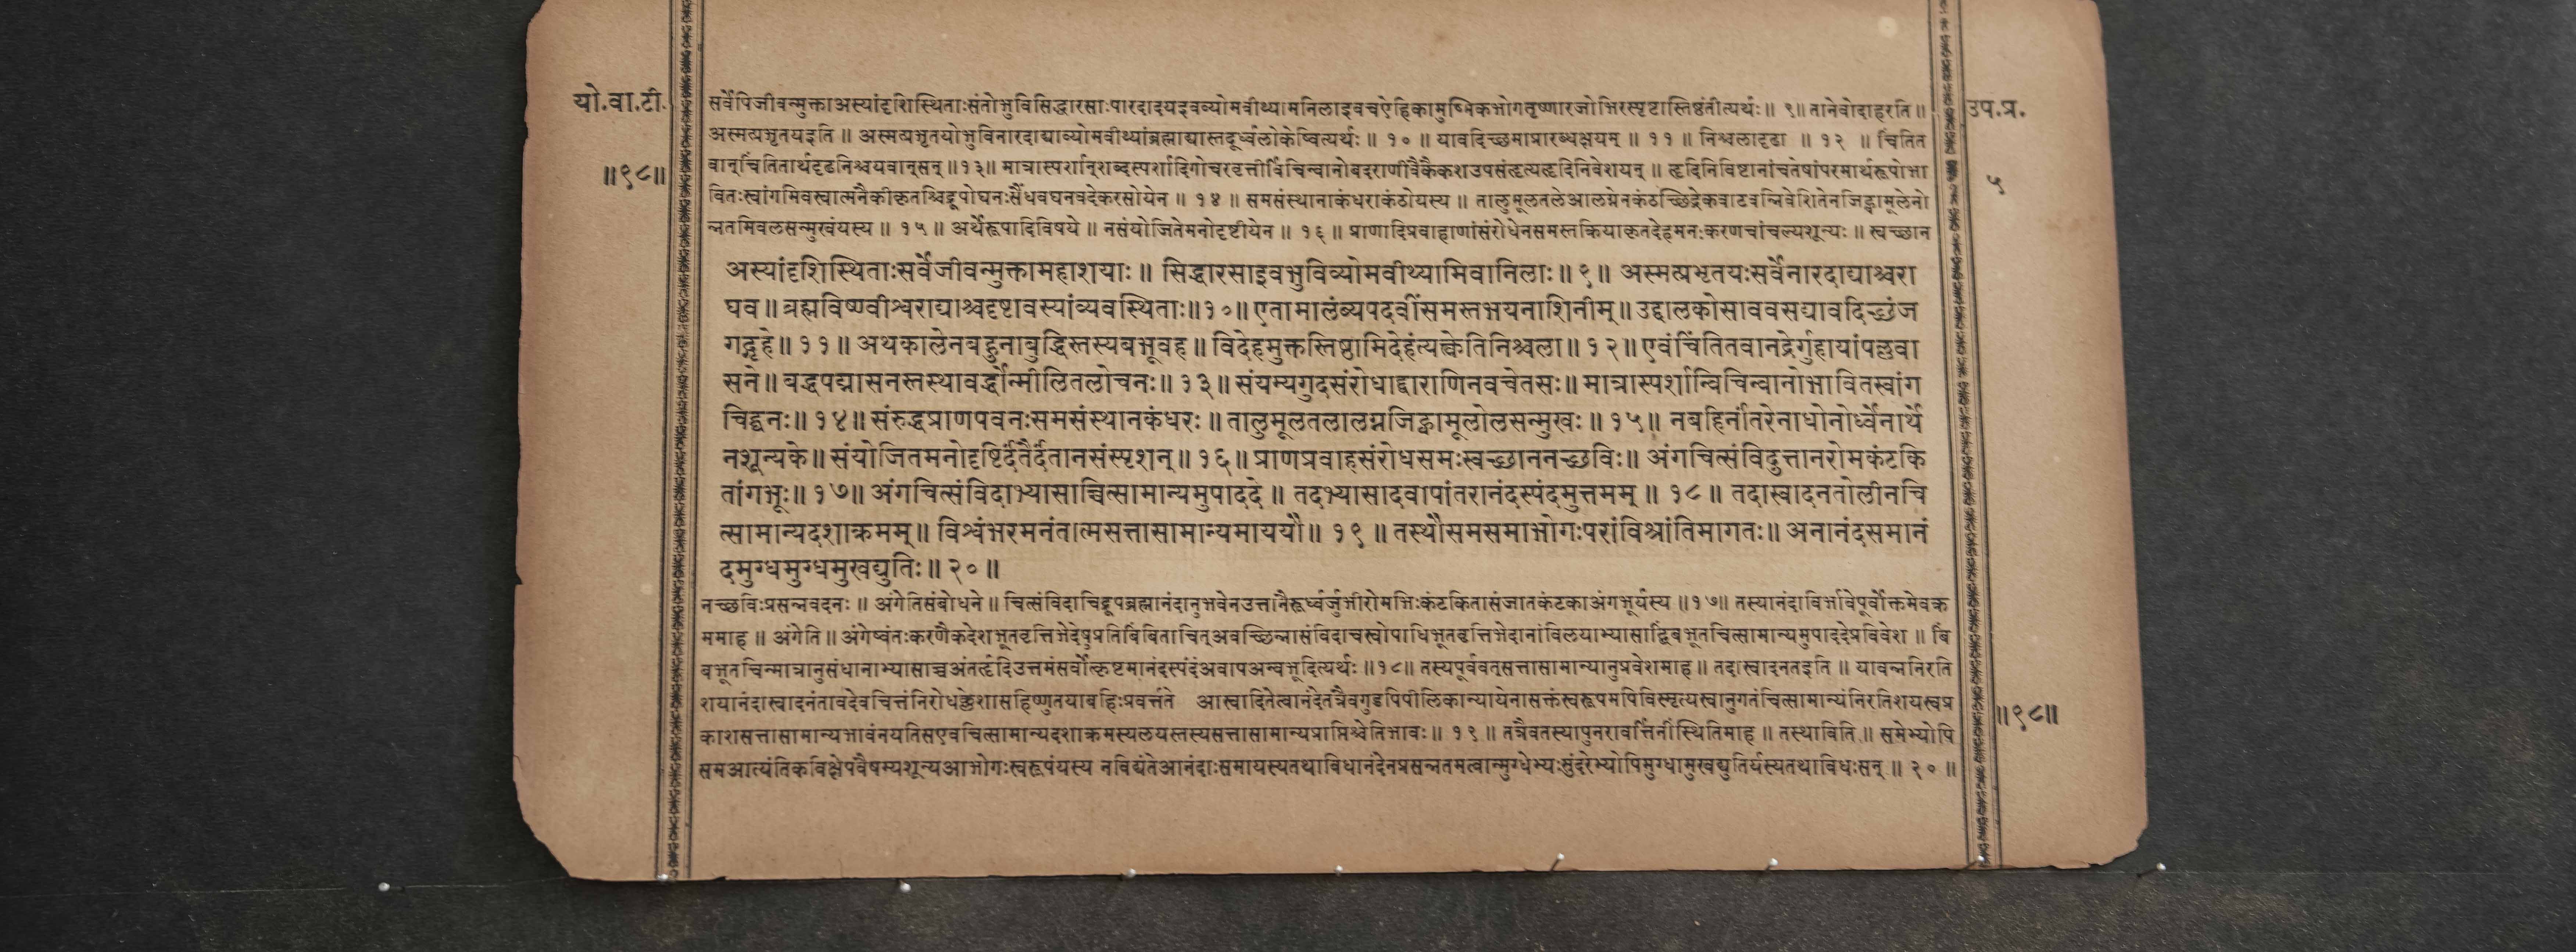 यो.वा.टी.
॥९८॥
उप.प्र.
५
सर्वेपिजीवन्मुक्ताअस्यांदृशिस्थिताःसंतोभुविसिद्धारसाःपारदादयइवव्योमवीथ्यामनिलाइवचऐहिकामुष्मिकभोगतृष्णारजोभिरस्पृष्टास्तिष्ठंतीत्यर्थः॥ ९॥ तानेवोदाहरति॥
अस्मत्प्रभृतयइति ॥ अस्मत्प्रभृतयोभुविनारदाद्याव्योमवीथ्यांब्रह्माद्यास्तदूर्ध्वलोकेष्वित्यर्थः ॥ १० ॥ यावदिच्छमाप्रारब्धक्षयम् ॥ ११ ॥ निश्चलादृढा ॥ १२ ॥ चिंतित
वान्चिंतितार्थदृढनिश्चयवान्सन् ॥१३॥ मात्रास्पर्शान्शब्दस्पर्शादिगोचरवृत्तीर्विचिन्वानोबदराणीवैकैकशउपसंहृत्यहृदिनिवेशयन् ॥ हृदिनिविष्टानांचतेषांपरमार्थरूपोभा
वितःस्वांगमिवस्वात्मनैकीकृतश्चिद्रूपोघनःसैंधवघनवदेकरसोयेन ॥ १४ ॥ समसंस्थानाकंधराकंठोयस्य ॥ तालुमूलतलेआलग्नेनकंठच्छिद्रेकवाटवन्निवेशितेनजिह्वामूलेनो
न्नतमिवलसन्मुखंयस्य ॥ १५ ॥ अर्थेरूपादिविषये ॥ नसंयोजितेमनोदृष्टीयेन ॥ १६ ॥ प्राणादिप्रवाहाणांसंरोधेनसमस्तक्रियाकृतदेहमनःकरणचांचल्यशून्यः ॥ स्वच्छान
अस्यांदृशिस्थिताःसर्वेजीवन्मुक्तामहाशयाः॥ सिद्धारसाइवभुविव्योमवीथ्यामिवानिलाः॥९॥ अस्मत्प्रभृतयःसर्वेनारदाद्याश्चरा
घव॥ ब्रह्मविष्ण्वीश्वराद्याश्चदृष्टावस्यांव्यवस्थिताः॥१०॥एतामालंब्यपदवींसमस्तभयनाशिनीम्॥उद्दालकोसाववसद्यावदिच्छंज
गद्गृहे॥११॥ अथकालेनबहुनाबुद्धिस्तस्यबभूवह॥ विदेहमुक्तस्तिष्ठामिदेहंत्यक्त्वेतिनिश्चला॥१२॥एवंचिंतितवानद्रेर्गुहायांपल्लवा
सने॥ बद्धपद्मासनस्तस्थावर्द्धोन्मीलितलोचनः॥१३॥संयम्यगुदसंरोधाद्द्वाराणिनवचेतसः॥ मात्रास्पर्शान्विचिन्वानोभावितस्वांग
चिद्घनः॥१४॥संरुद्धप्राणपवनःसमसंस्थानकंधरः॥ तालुमूलतलालग्नजिह्वामूलोलसन्मुखः॥१५॥ नबहिर्नांतरेनाधोनोर्ध्वेनार्थे
नशून्यके॥ संयोजितमनोदृष्टिर्दंतैर्दंतानसंस्पृशन्॥१६॥प्राणप्रवाहसंरोधसमःस्वच्छाननच्छविः॥ अंगचित्संविदुत्तानरोमकंटकि
तांगभूः॥१७॥ अंगचित्संविदाभ्यासाच्चित्सामान्यमुपाददे॥ तदभ्यासादवापांतरानंदस्पंदमुत्तमम्॥ १८॥ तदास्वादनतोलीनचि
त्सामान्यदशाक्रमम्॥ विश्वंभरमनंतात्मसत्तासामान्यमाययौ॥ १९॥ तस्थौसमसमाभोगःपरांविश्रांतिमागतः॥ अनानंदसमानं
दमुग्धमुग्धमुखद्युतिः॥२०॥
नच्छविःप्रसन्नवदनः ॥ अंगेतिसंबोधने ॥ चित्संविदाचिद्रूपब्रह्मानंदानुभवेनउत्तानैरूर्ध्वर्जुभीरोमभिःकंटकितासंजातकंटकाअंगभूर्यस्य ॥१७॥ तस्यानंदाविर्भावेपूर्वोक्तमेवक
ममाह ॥ अंगेति॥ अंगेष्वंतःकरणैकदेशभूतवृत्तिभेदेषुप्रतिबिंबिताचित्अवच्छिन्नासंविदाचस्वोपाधिभूतवृत्तिभेदानांविलयाभ्यासाद्बिंबभूतचित्सामान्यमुपाददेप्रविवेश ॥ बिं
बभूतचिन्मात्रानुसंधानाभ्यासाच्चअंतर्हृदिउत्तमंसर्वोत्कृष्टमानंदस्पंदंअवापअन्वभूदित्यर्थः ॥१८॥ तस्यपूर्ववत्सत्तासामान्यानुप्रवेशमाह॥ तदास्वादनतइति ॥ यावन्ननिरति
शयानंदास्वादनंतावदेवचित्तंनिरोधक्लेशासहिष्णुतयाबहिःप्रवर्त्तते आस्वादितेत्वानंदेतत्रैवगुडपिपीलिकान्यायेनासक्तंस्वरूपमपिविस्मृत्यस्वानुगतंचित्सामान्यंनिरतिशयस्वप्र
काशसत्तासामान्यभावंनयतिसएवचित्सामान्यदशाक्रमस्यलयस्तस्यसत्तासामान्यप्राप्तिश्चेतिभावः॥ १९॥ तत्रैवतस्यापुनरावर्त्तिनींस्थितिमाह॥ तस्थाविति॥ समेभ्योपि
समआत्यंतिकविक्षेपवैषम्यशून्यआभोगःस्वरूपंयस्य नविद्यंतेआनंदाःसमायस्यतथाविधानंदेनप्रसन्नतमत्वान्मुग्धेभ्यःसुंदरेभ्योपिमुग्धामुखद्युतिर्यस्यतथाविधःसन् ॥ २० ॥
॥९८॥